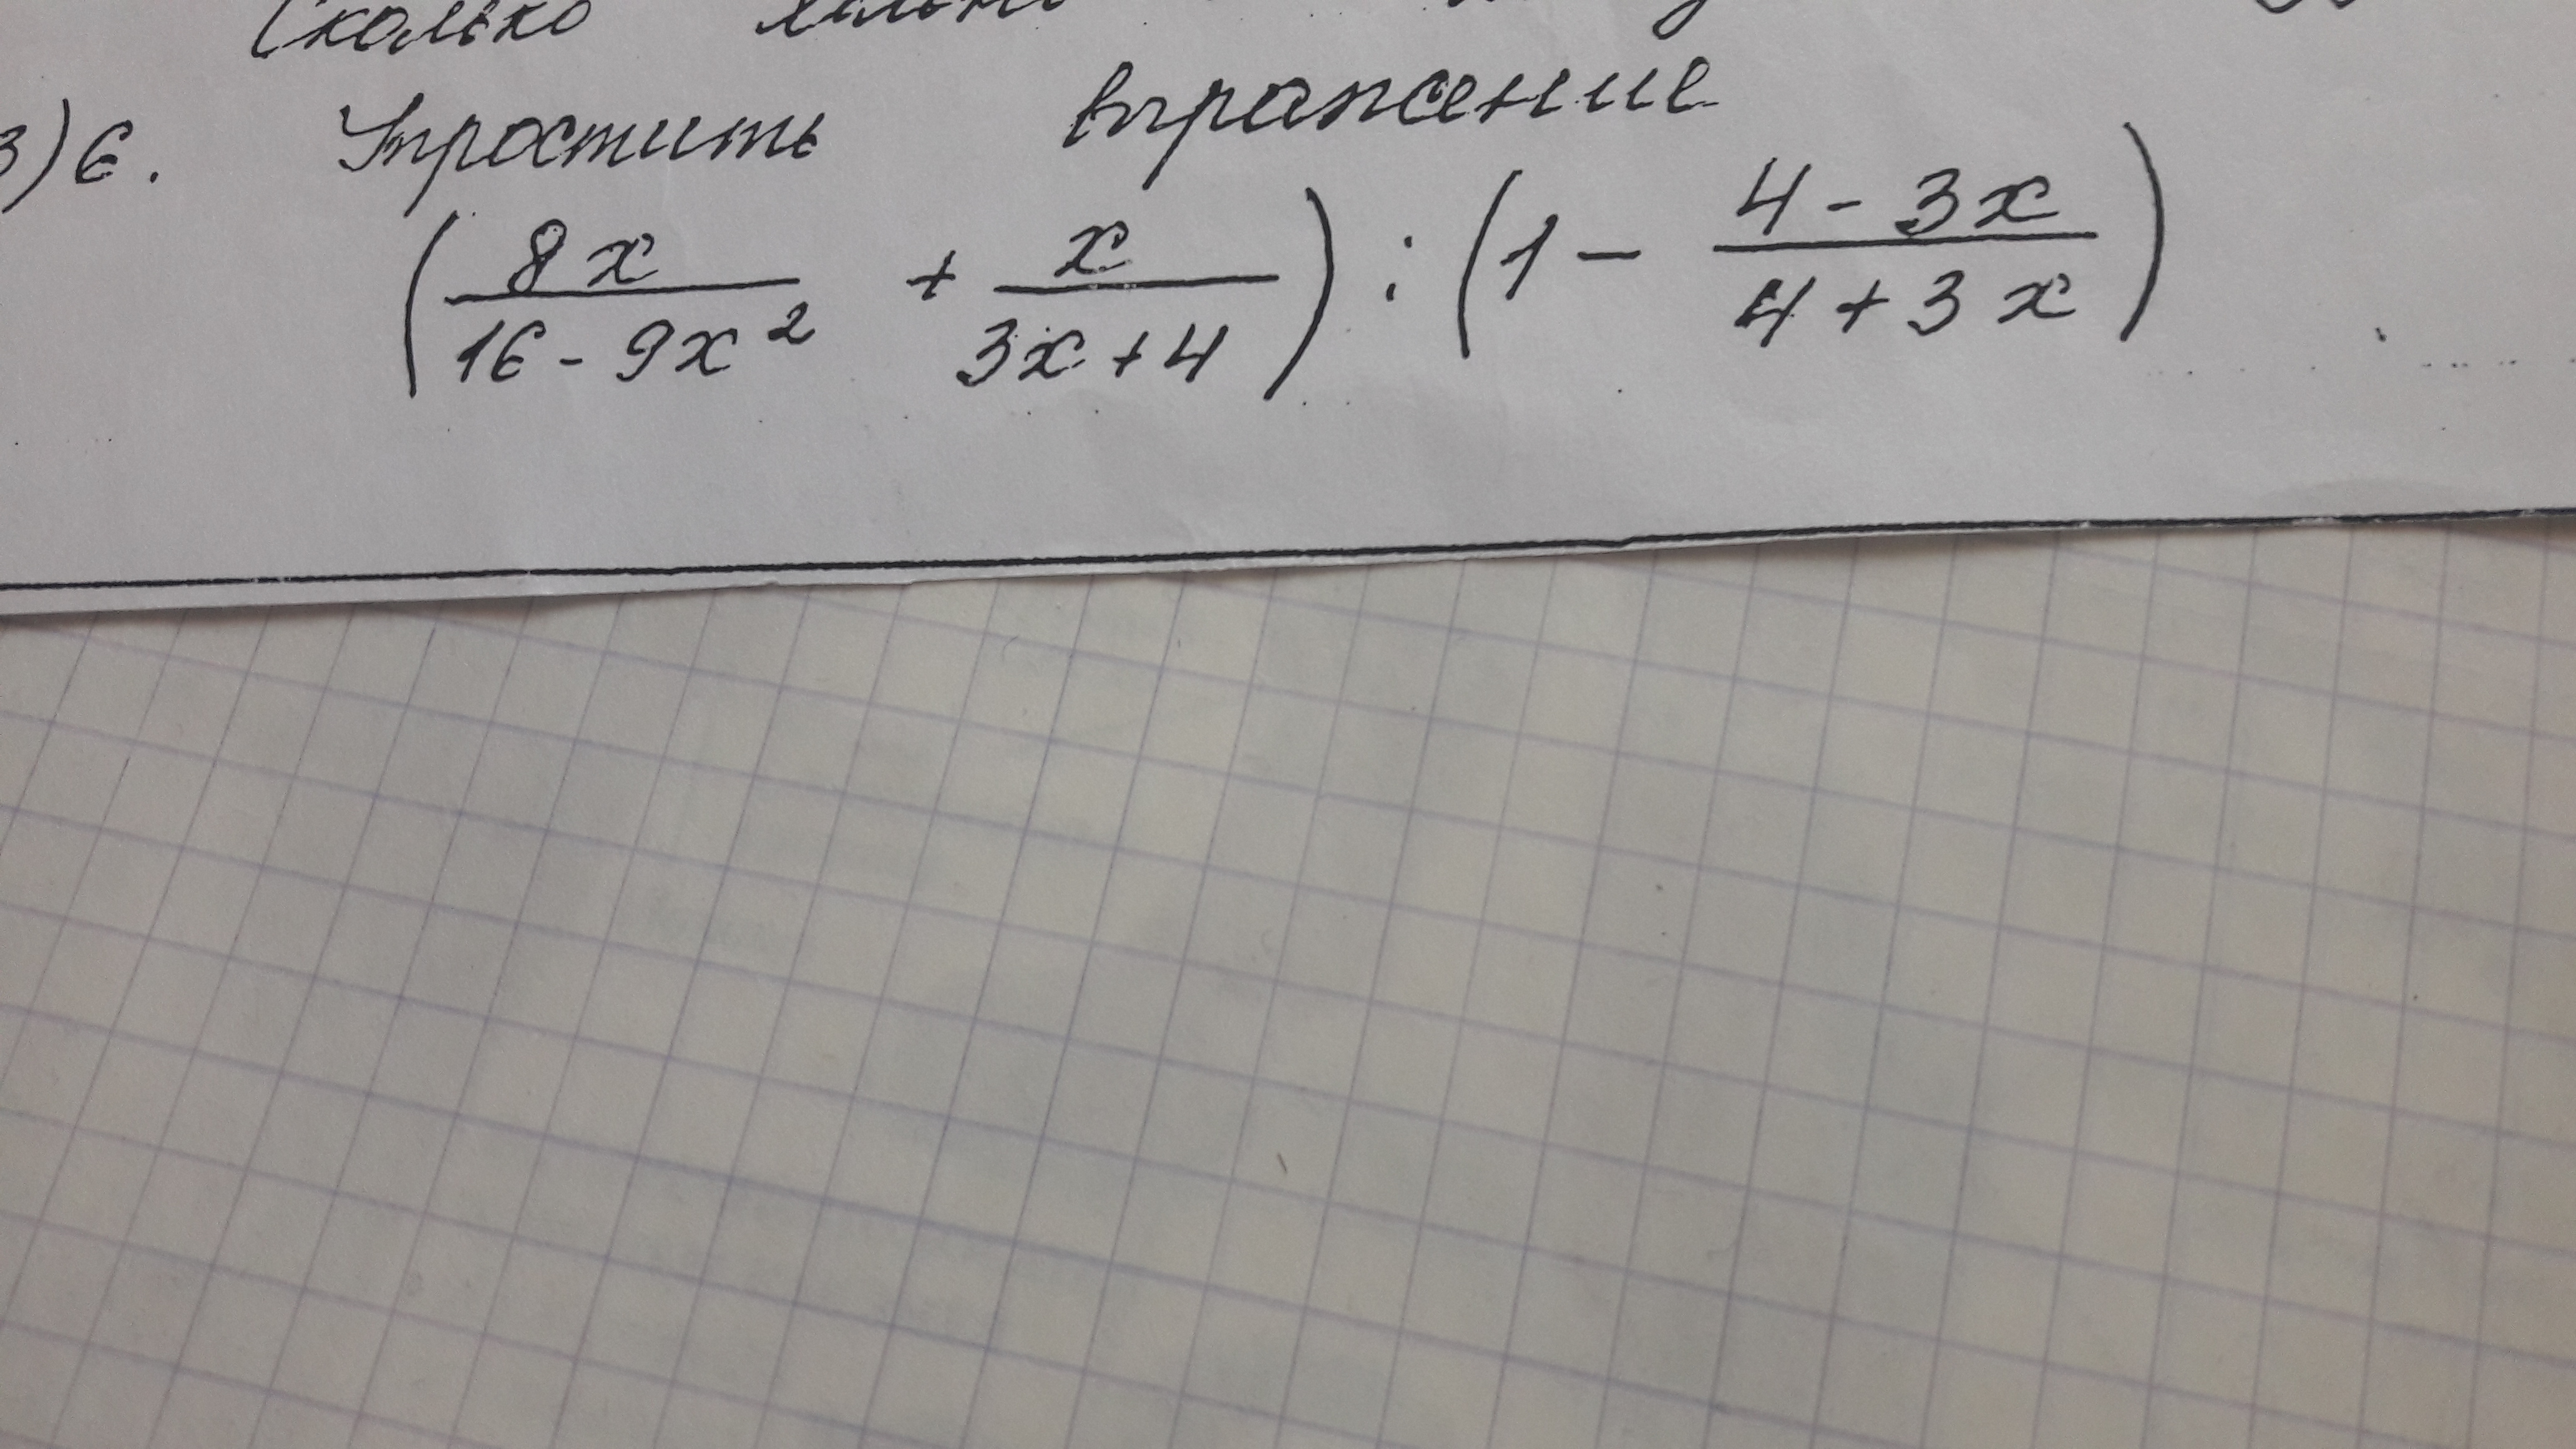 Сколько
3) 6. Упростить выражение
(8x/(16 - 9x²) + x/(3x + 4)) : (1 - (4 - 3x)/(4 + 3x))